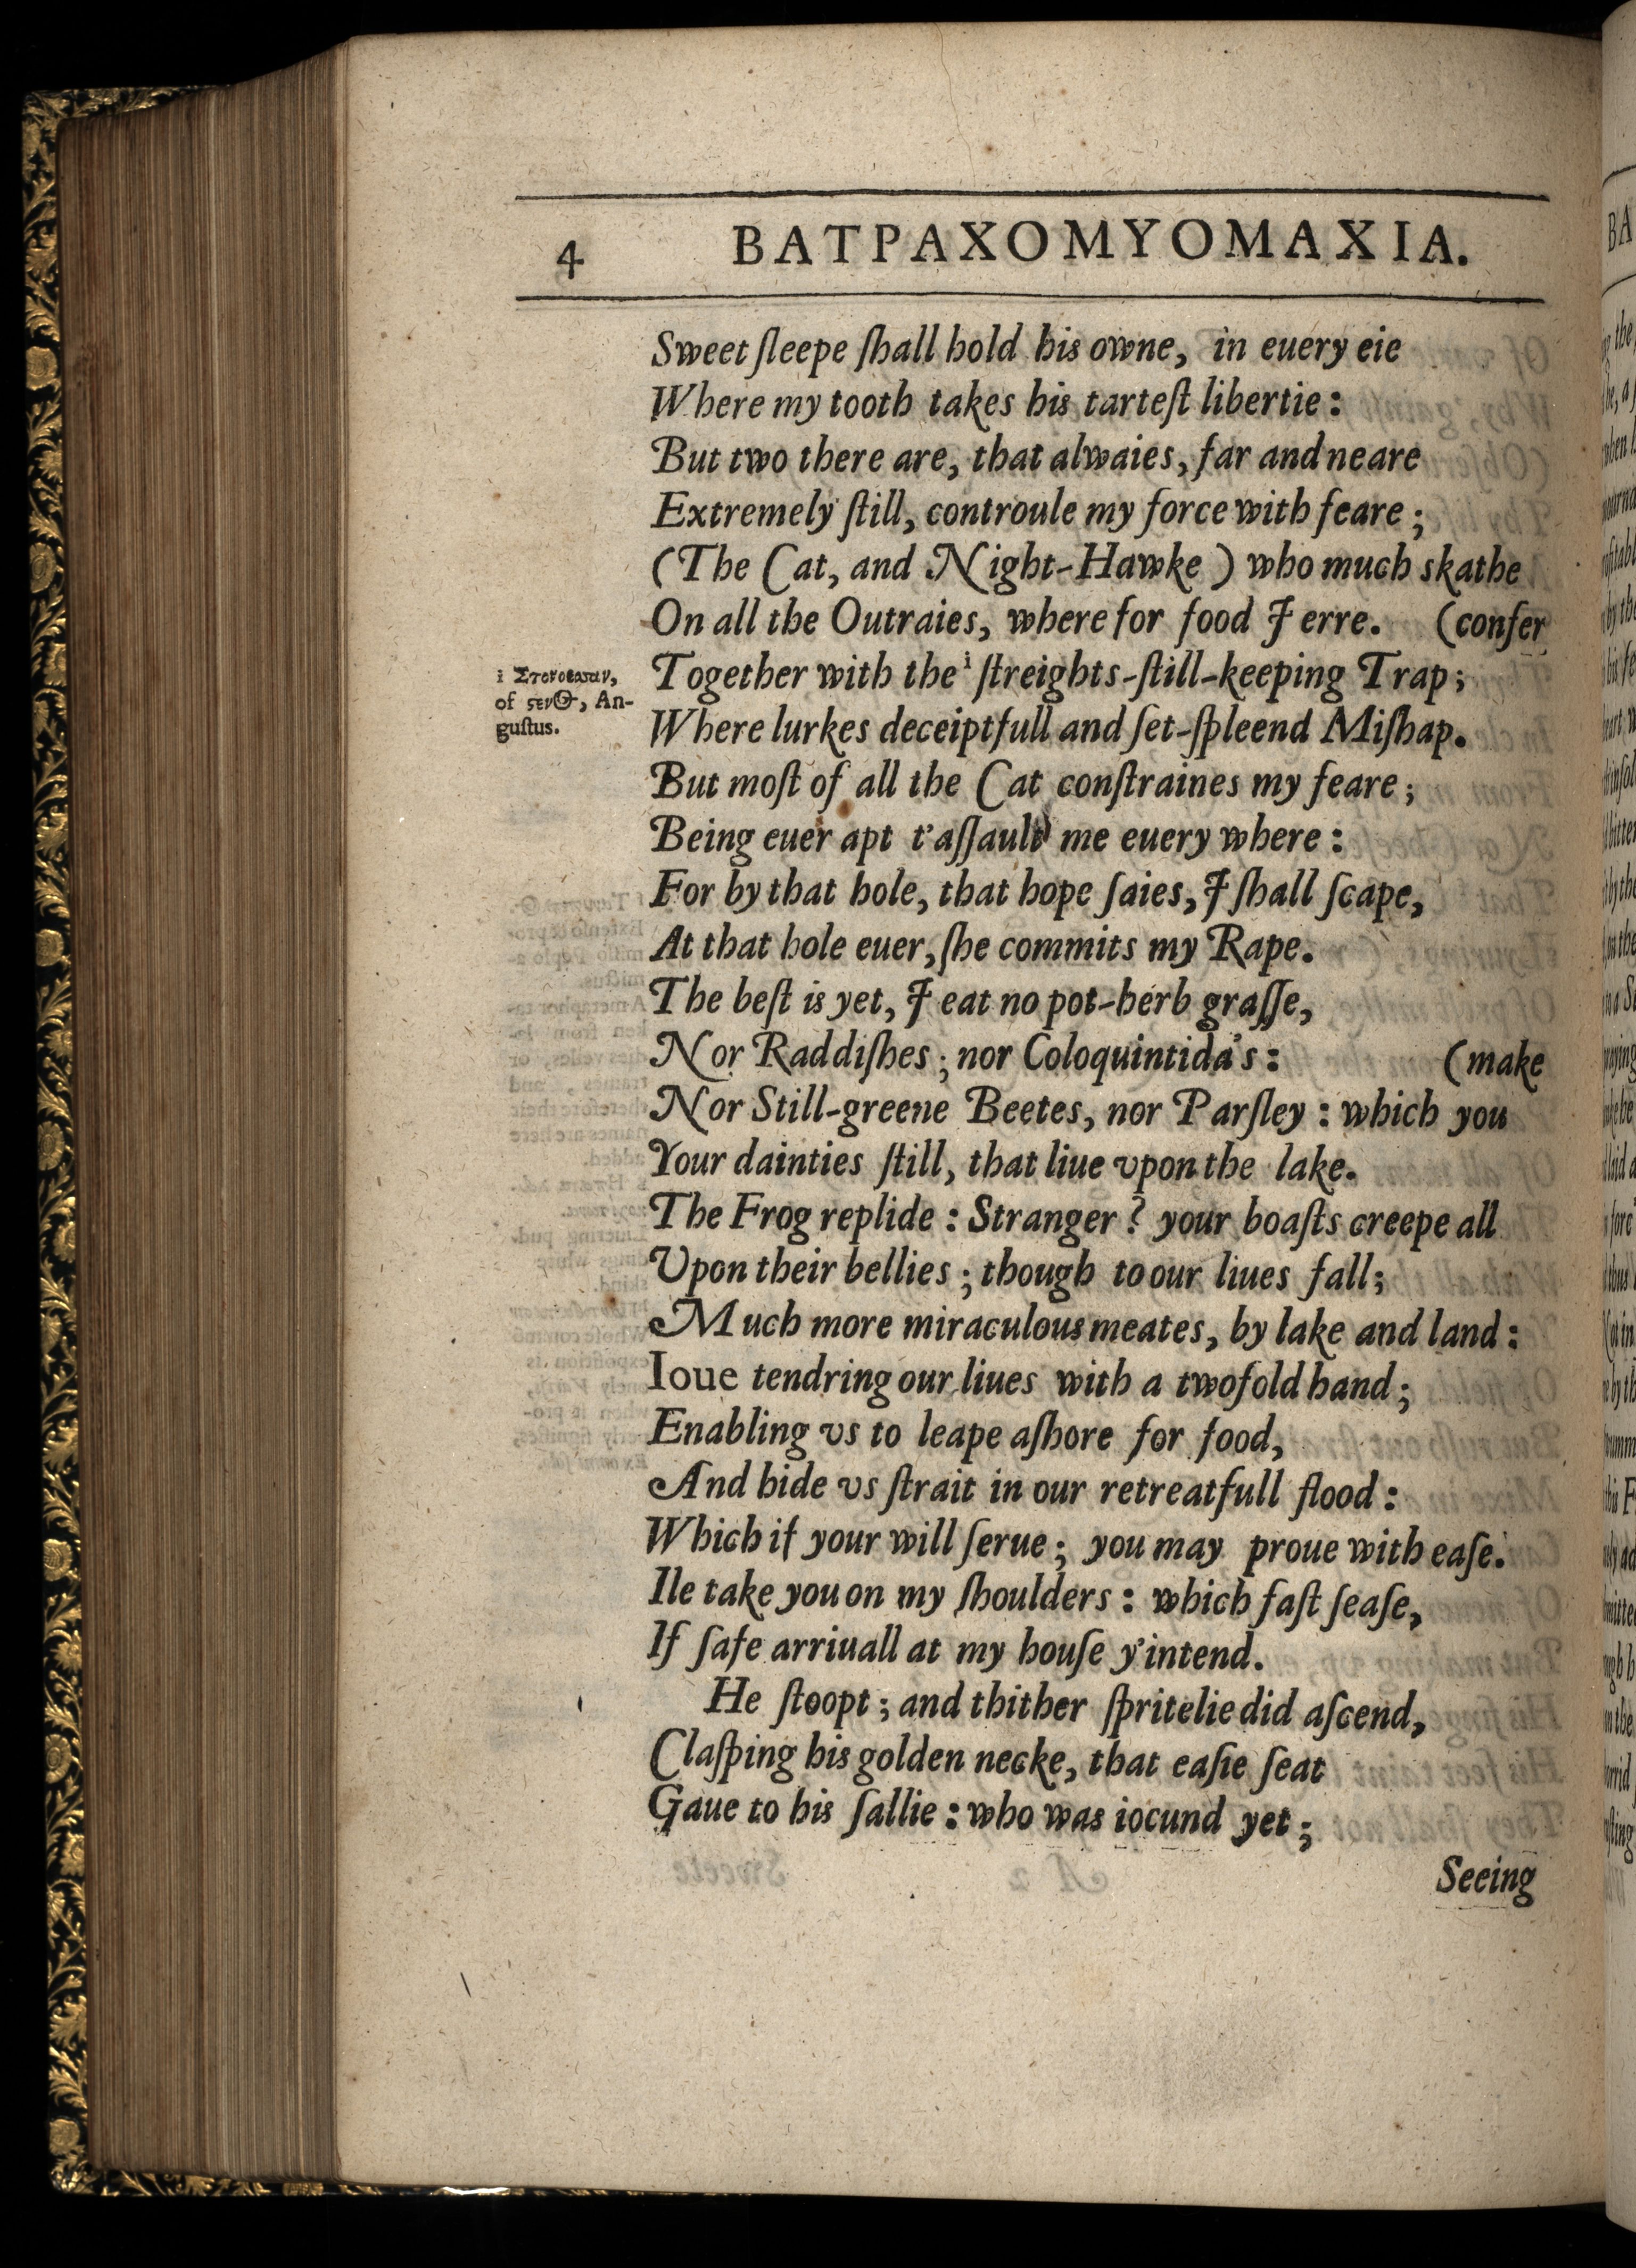 4 BATPAXOMYOMAXIA.
Sweet ſleepe ſhall hold his owne, in euery eie
Where my tooth takes his tarteſt libertie :
But two there are, that alwaies, far and neare
Extremely ſtill, controule my force with feare ;
(The Cat, and Night-Hawke ) who much skathe
On all the Outraies, where for food I erre. (confer
Together with the i ſtreights-ſtill-keeping Trap;
i Στονόεσσαν,
of ςεν⊙, An-
guſtus.
Where lurkes deceiptfull and ſet-ſpleend Miſhap.
But moſt of all the Cat conſtraines my feare ;
Being euer apt t'aſſault me euery where :
For by that hole, that hope ſaies, I ſhall ſcape,
At that hole euer, ſhe commits my Rape.
The beſt is yet, I eat no pot-herb graſſe,
Nor Raddiſhes ; nor Coloquintida's : (make
Nor Still-greene Beetes, nor Parſley : which you
Your dainties ſtill, that liue vpon the lake.
The Frog replide : Stranger ? your boaſts creepe all
Vpon their bellies ; though to our liues fall;
Much more miraculous meates, by lake and land :
Ioue tendring our liues with a twofold hand ;
Enabling vs to leape aſhore for food,
And hide vs ſtrait in our retreatfull flood :
Which if your will ſerue ; you may proue with eaſe.
Ile take you on my ſhoulders : which faſt ſeaſe,
If ſafe arriuall at my houſe y'intend.
He ſtoopt ; and thither ſpritelie did aſcend,
Claſping his golden necke, that eaſie ſeat
Gaue to his ſallie : who was iocund yet ;
Seeing